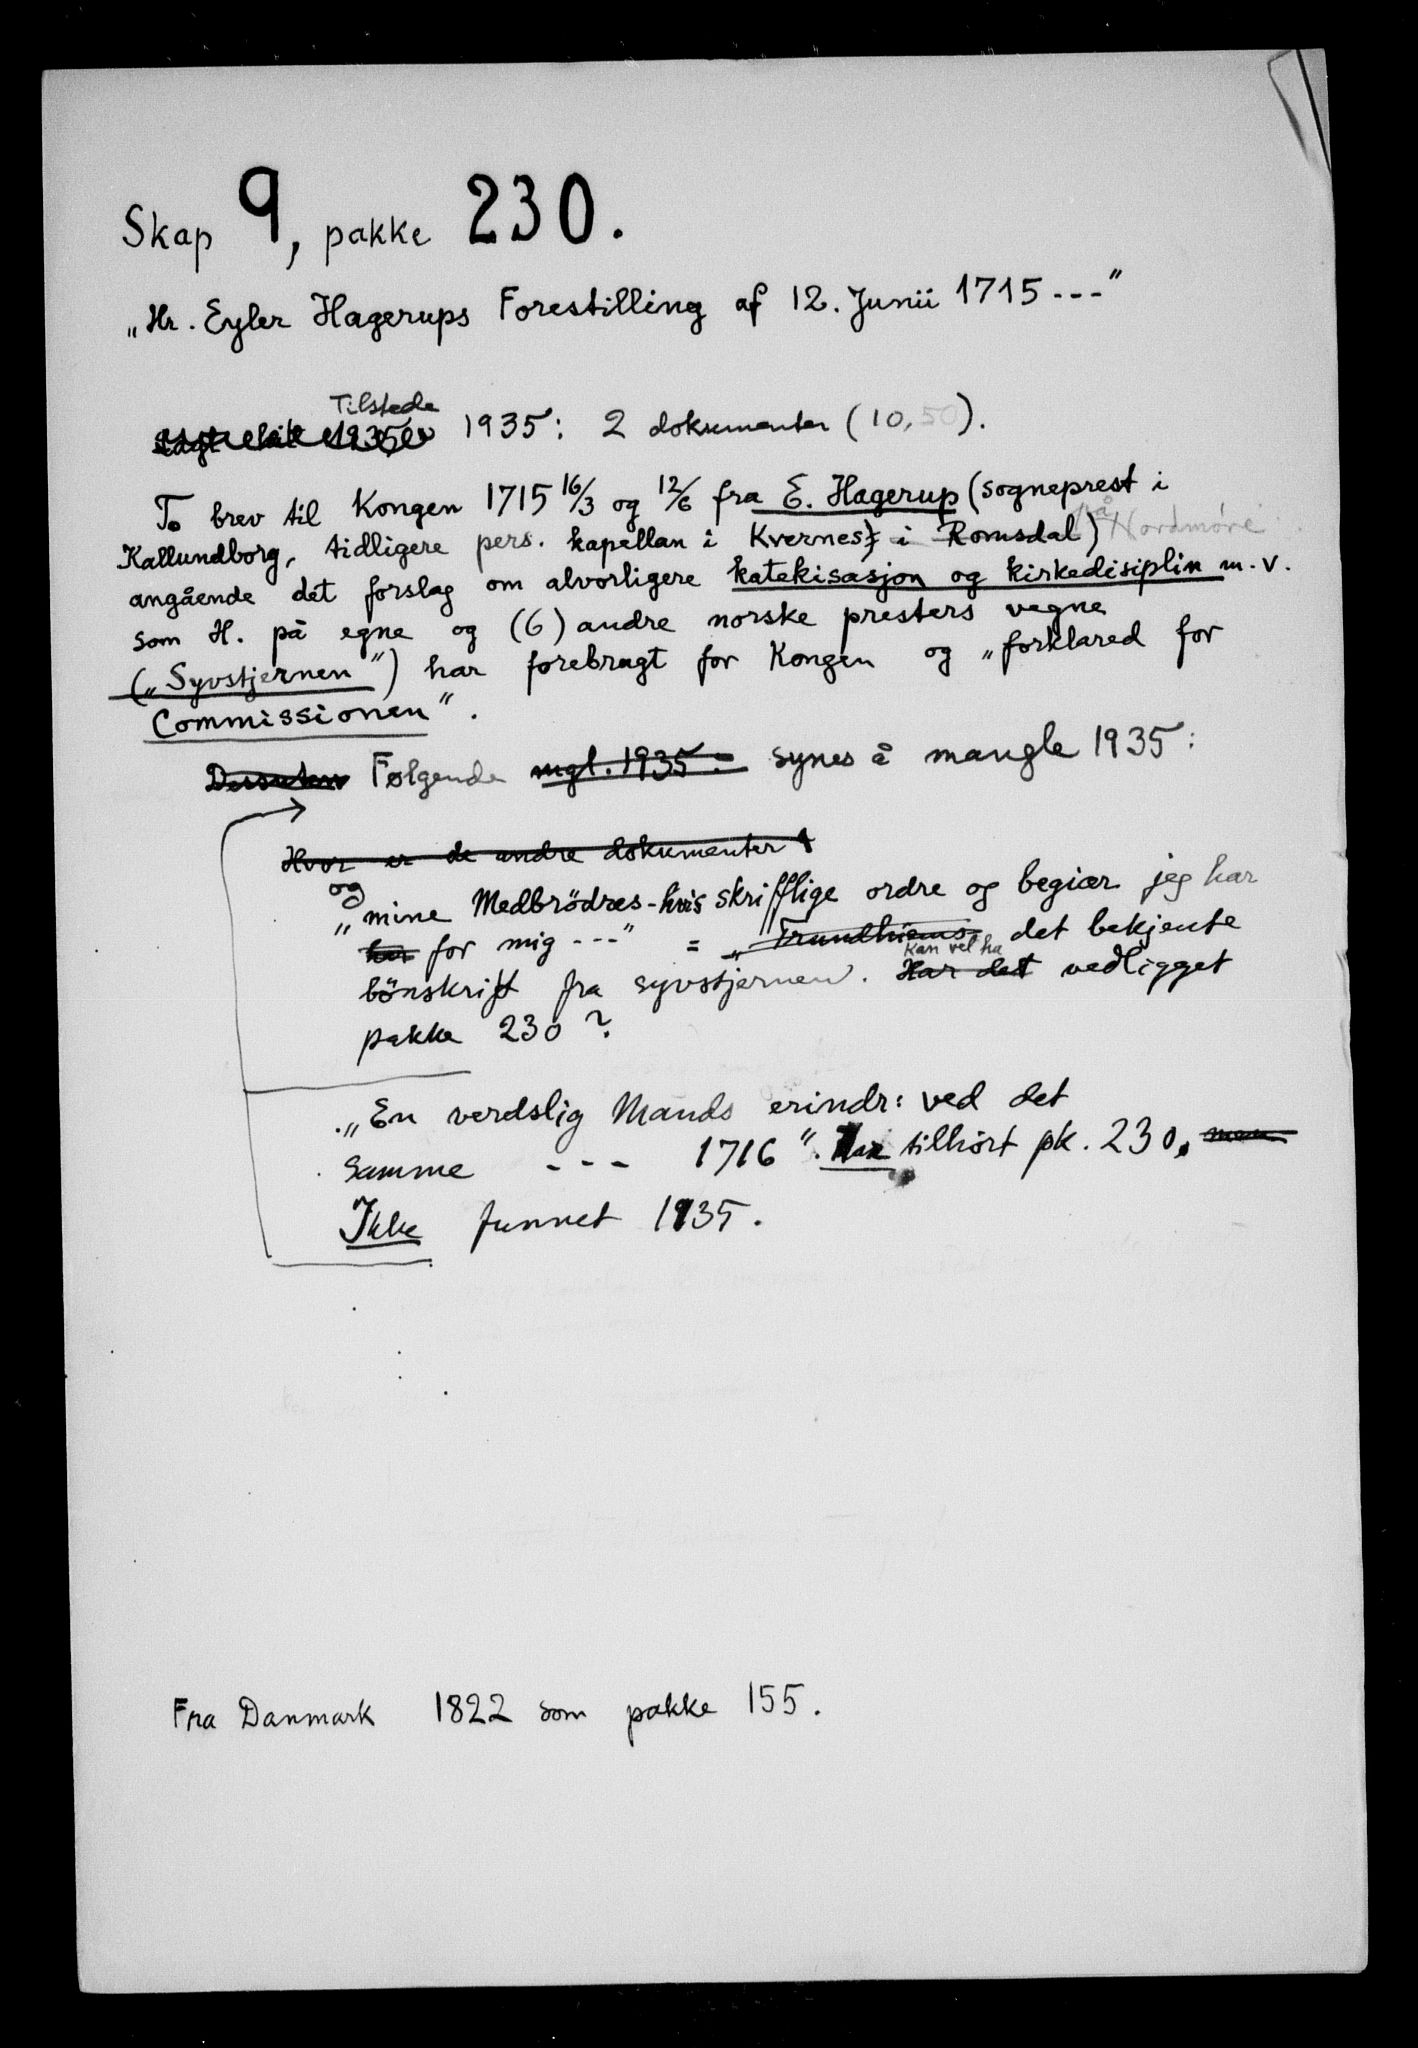 Skap 9, pakke 230.
„Hr. Eyler Hagerups Forestilling af 12. Junii 1715 ---"
Tilstede
1935: 2 dokumenter (10,50).
To brev til Kongen 1715 16/3 og 12/6 fra E. Hagerup (sogneprest i
Kallundborg, tidligere pers. kapellan i Kvernes i Romsdal) på Nordmøre
angående det forslag om alvorligere katekisasjon og kirkedisiplin m.v.
som H. på egne og (6) andre norske presters vegne
(„Syvstjernen") har forebragt for Kongen og „forklared for
Commissionen".
Dessuten Følgende mgl. 1935. synes å mangle 1935:
Hvor er de andre dokumenter
og
„mine Medbrödres hvis skrifftlige ordre og begiær jeg har
har for mig ---" = „Trundhiems det bekjente
kan vel ha
bönskrift fra syvstjernen. Har det vedligget
pakke 230?
„En verdslig Mands erindr: ved det
samme --- 1716". Har tilhört pk. 230, men
Ikke funnet 1935.
Fra Danmark 1822 som pakke 155.